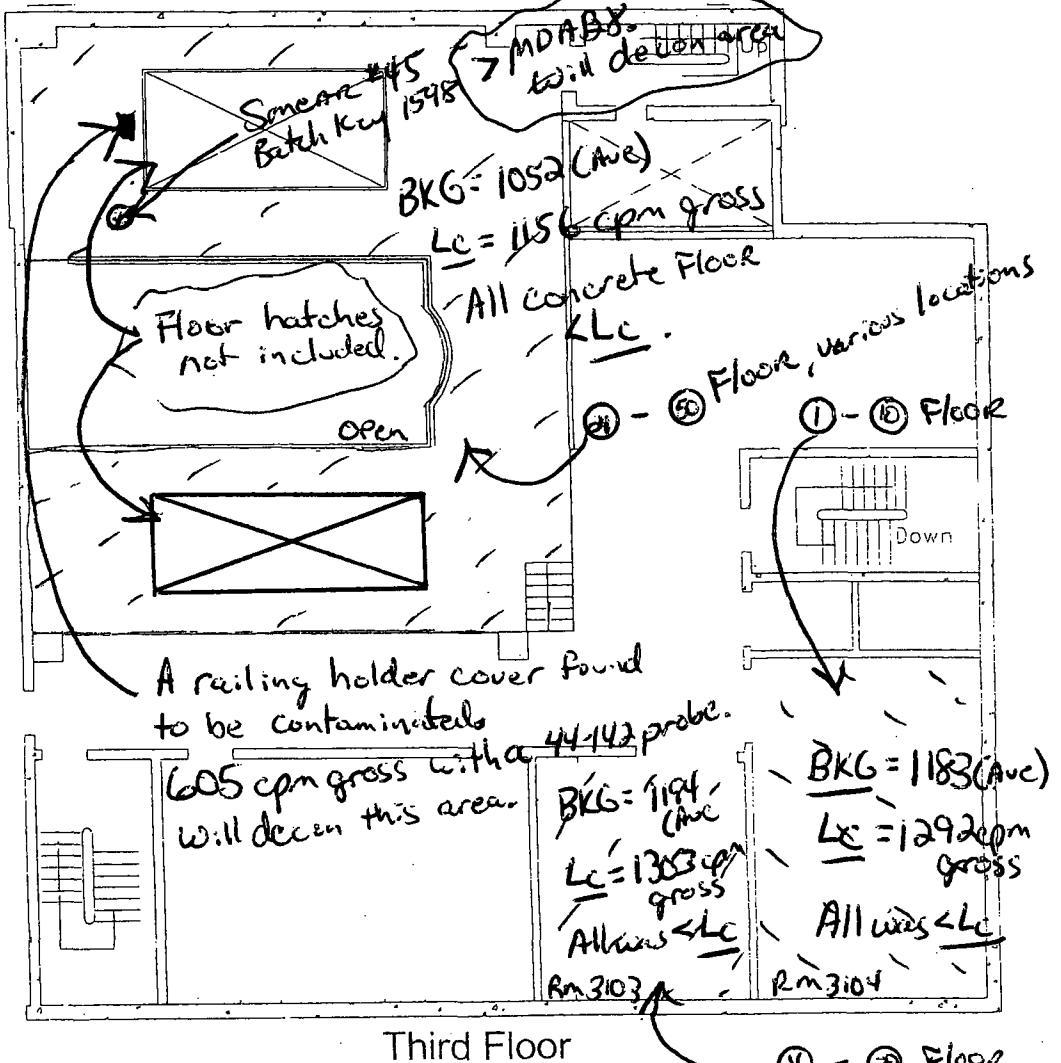 Smear #45
Batch Key 1598
> MDA
Will decon area
Up
BKG = 1052 (Ave)
Lc = 1156 cpm gross
All concrete Floor
<Lc.
Floor hatches
not included.
Open
- 50 Floor, various locations
1 - 10 Floor
Down
A railing holder cover found
to be contaminated.
605 cpm gross with a 44-142 probe.
Will decon this area.
BKG = 1194
(Ave
Lc = 1303 cpm
gross
All was <Lc
Rm 3103
BKG = 1183 (Ave)
Lc = 1292 cpm
gross
All was <Lc
Rm 3104
Third Floor
Floor